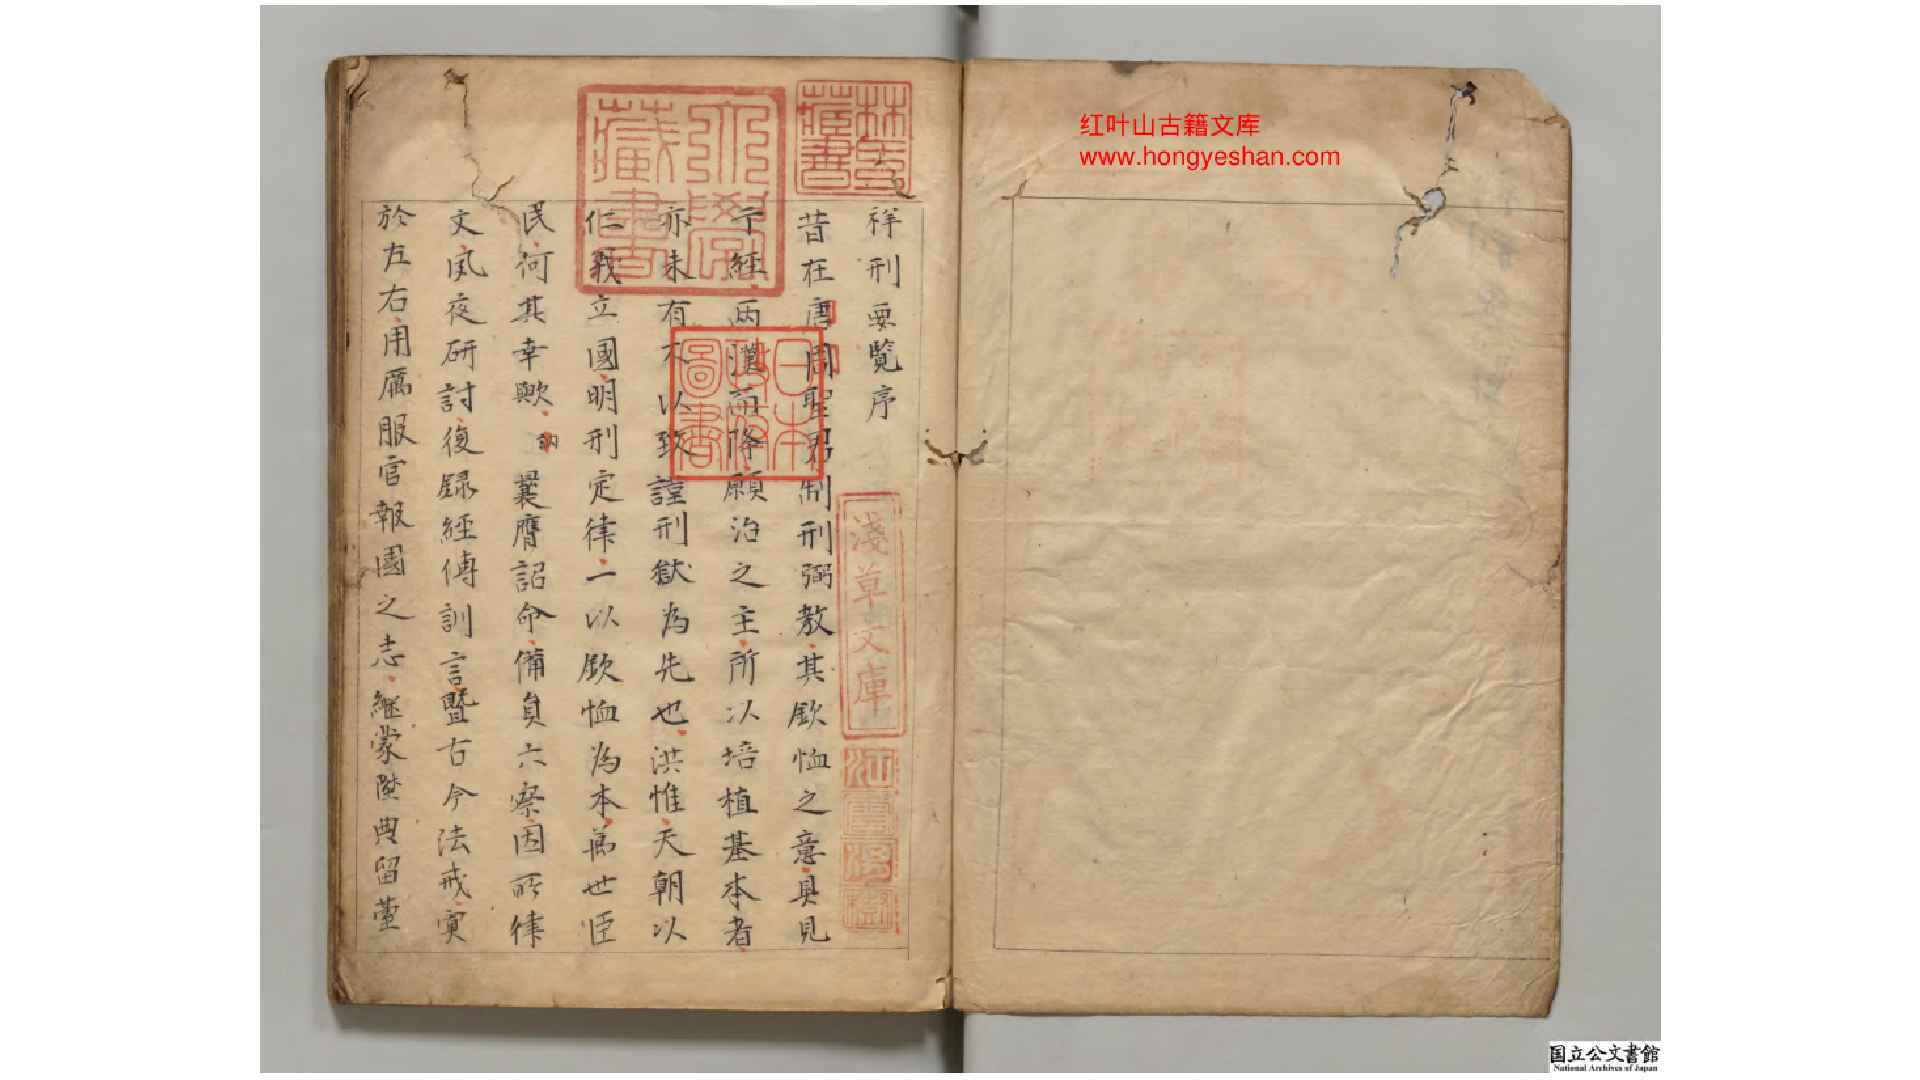 祥刑要覽序
昔在唐虞聖君制刑弼教其欽恤之意具見
于經兩漢而降願治之主所以培植基本者
亦未有不以致謹刑獄為先也洪惟天朝以
仁義立國明刑定律一以欽恤為本萬世臣
民何其幸歟訥曩膺詔命備員六察因所律
文夙夜研討復録經傳訓言暨古今法戒寘
於左右用厲服官報國之志継蒙陞典留臺
林氏藏書
大學藏書
日本政府圖書
淺草文庫
江雲渭樹
红叶山古籍文库
www.hongyeshan.com
国立公文書館
National Archives of Japan